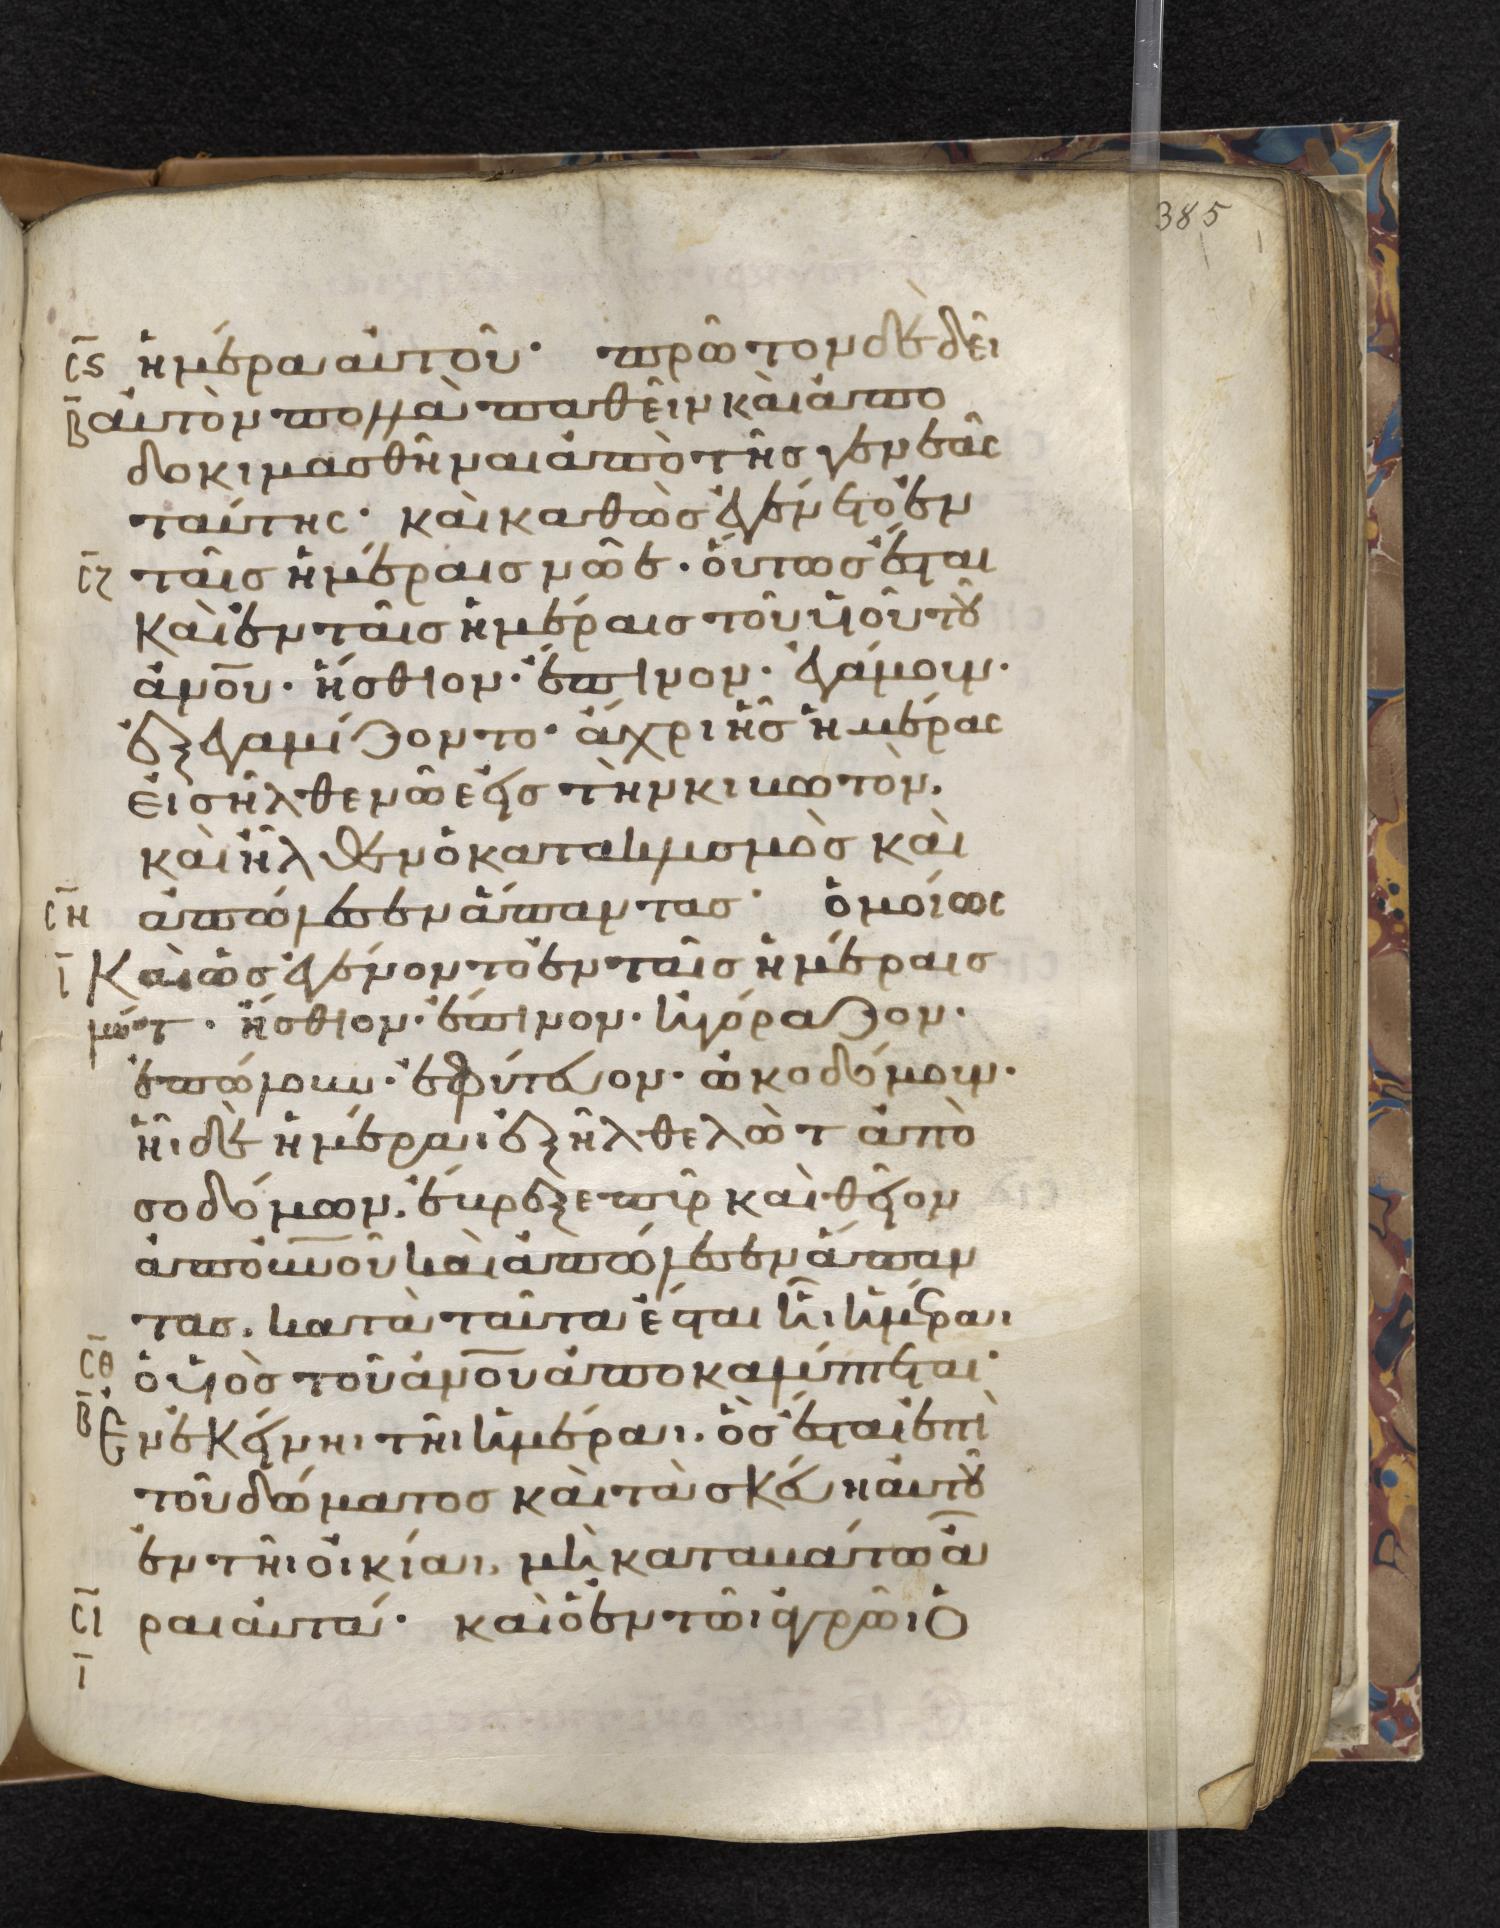 385
Ϲϛ ἡμέραι αὐτοῦ· πρῶτον δὲ δεῖ
Β αὐτὸν πολλὰ παθεῖν καὶ ἀπο
δοκιμασθῆναι ἀπὸ τῆς γενεᾶς
ταύτης· καὶ καθὼς ἐγένετο ἐν
Ϲζ ταῖς ἡμέραις νῶε· οὕτως ἔσται
καὶ ἐν ταῖς ἡμέραις τοῦ υἱοῦ τοῦ
ἀνου· ἤσθιον· ἔπινον· ἐγάμουν·
ἐξεγαμίζοντο· ἄχρι ἧς ἡμέρας
εἰσῆλθε νῶε εἰς τὴν κιβωτόν.
καὶ ἦλθεν ὁ κατακλυσμὸς καὶ
Ϲη ἀπώλεσεν ἅπαντας· ὁμοίως
Ι Καὶ ὡς ἐγένοντο ἐν ταῖς ἡμέραις
λώτ· ἤσθιον· ἔπινον· ἠγόραζον·
ἐπώλουν· ἐφύτευον· ὠκοδόμουν·
ἧι δὲ ἡμέραι ἐξῆλθε λὼτ ἀπὸ
σοδόμων. ἔβρεξε πῦρ καὶ θεῖον
ἀπὸ οὐνοῦ καὶ ἀπώλεσεν ἅπαν
τας. κατὰ ταῦτα ἔσται ἧι ἡμέραι
Ϲθ ὁ υἱὸς τοῦ ἀνου ἀποκαλύπτεται·
Β Ἐν ἐκείνηι τῆι ἡμέραι. ὃς ἔσται ἐπὶ
τοῦ δώματος καὶ τὰ σκεύη αὐτοῦ
ἐν τῆι οἰκίαι, μὴ καταβάτω ἆ
Ϲι ραι αὐτά· καὶ ὁ ἐν τῶι ἀγρῶι ὁ
Ι